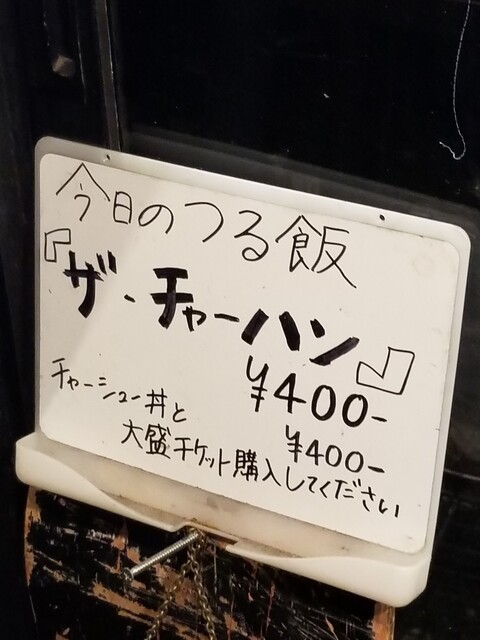 今日のつる飯
『ザ・チャーハン』
¥400-
チャーシュー丼と ¥400-
大盛チケット購入してください